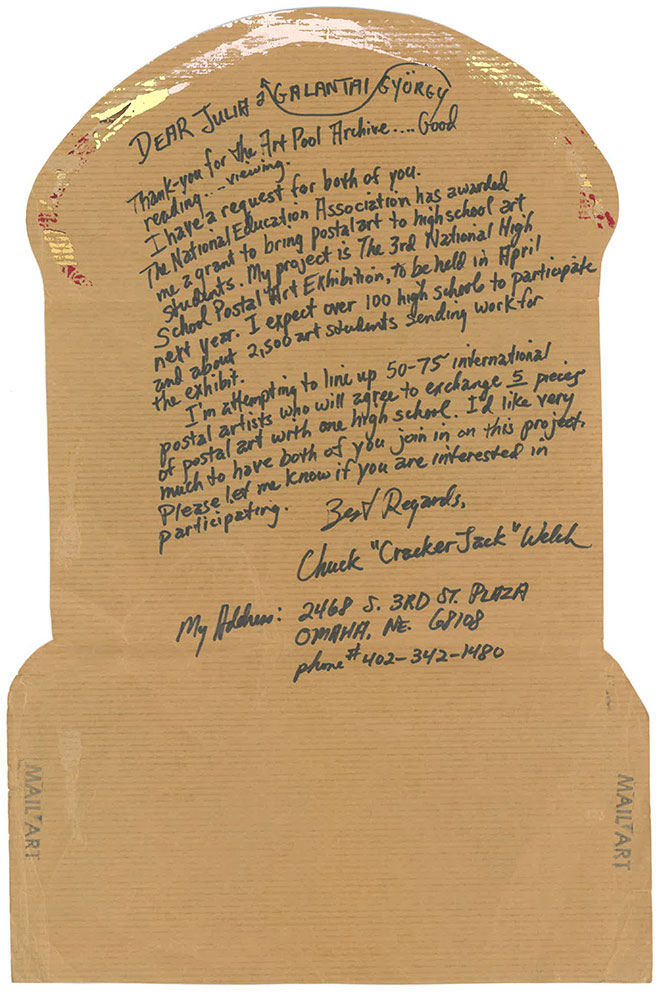 DEAR JULIA & GALANTAI GYÖRGY
Thank-you for the Art Pool Archive.... Good
reading... viewing.
I have a request for both of you.
The National Education Association has awarded
me a grant to bring postal art to high school art
students. My project is The 3rd National High
School Postal Art Exhibition, to be held in April
next year. I expect over 100 high schools to participate
and about 2,500 art students sending work for
the exhibit.
I'm attempting to line up 50-75 international
postal artists who will agree to exchange 5 pieces
of postal art with one high school. I'd like very
much to have both of you join in on this project.
Please let me know if you are interested in
participating.
Best Regards,
Chuck "CrackerJack" Welch
My Address: 2468 S. 3RD ST. PLAZA
OMAHA, NE. 68108
phone # 402-342-1480
MAIL ART
MAIL ART